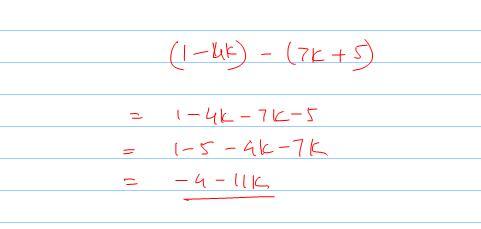 (1-4k) - (7k+5)
= 1-4k-7k-5
= 1-5-4k-7k
= -4-11k